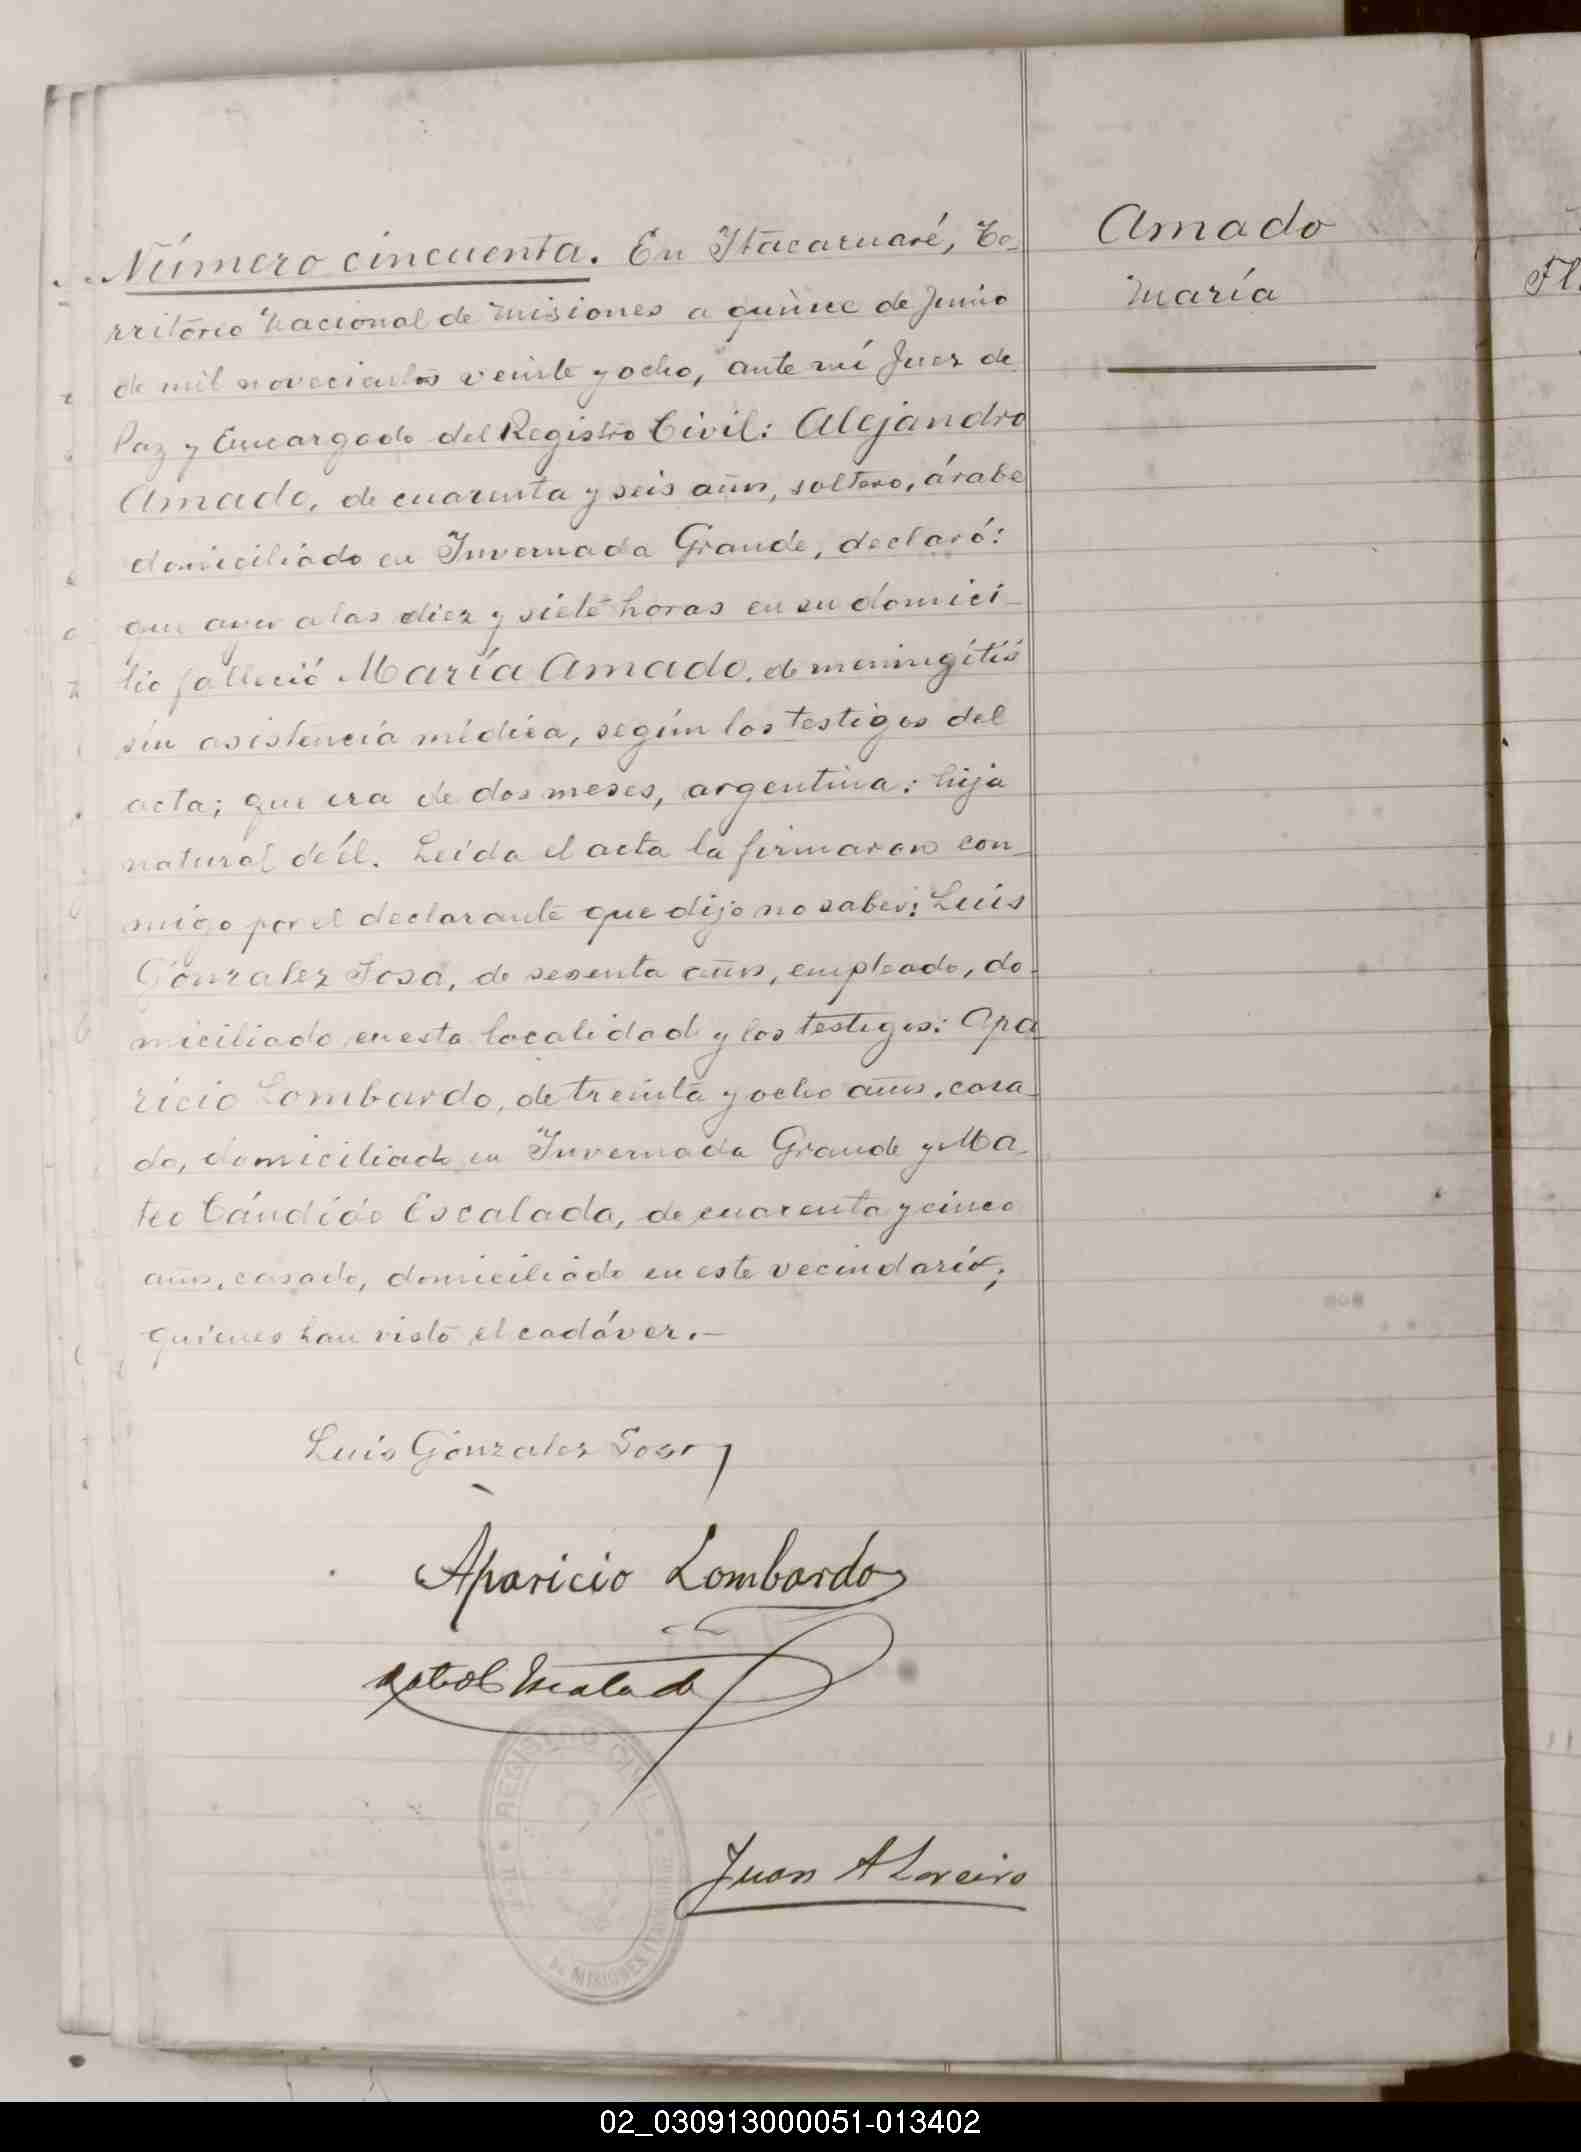 Número cincuenta. En Itacaruaré, Te-
rritorio Nacional de Misiones a quince de Junio
de mil novecientos veinte y ocho, ante mí Juez de
Paz y Encargado del Registro Civil: Alejandro
Amado, de cuarenta y seis años, soltero, árabe
domiciliado en Invernada Grande, declaró:
que ayer a las diez y siete horas en su domici-
lio falleció María Amado, de meningitis
sin asistencia médica, según los testigos del
acta; que era de dos meses, argentina; hija
natural de él. Leida el acta la firmaron con-
migo por el declarante que dijo no saber: Luis
Gonzalez Sosa, de sesenta años, empleado, do-
miciliado en esta localidad y los testigos: Apa-
ricio Lombardo, de treinta y ocho años, casa-
do, domiciliado en Invernada Grande y Ma-
teo Cándido Escalada, de cuarenta y cinco
años, casado, domiciliado en este vecindario;
quienes han visto el cadáver.-
Amado
María
Fl
Luis Gonzalez Sosa
Aparicio Lombardo
Mateo C Escalada
REGISTRO CIVIL
DE MISIONES
Juan A Loreiro
02_030913000051-013402